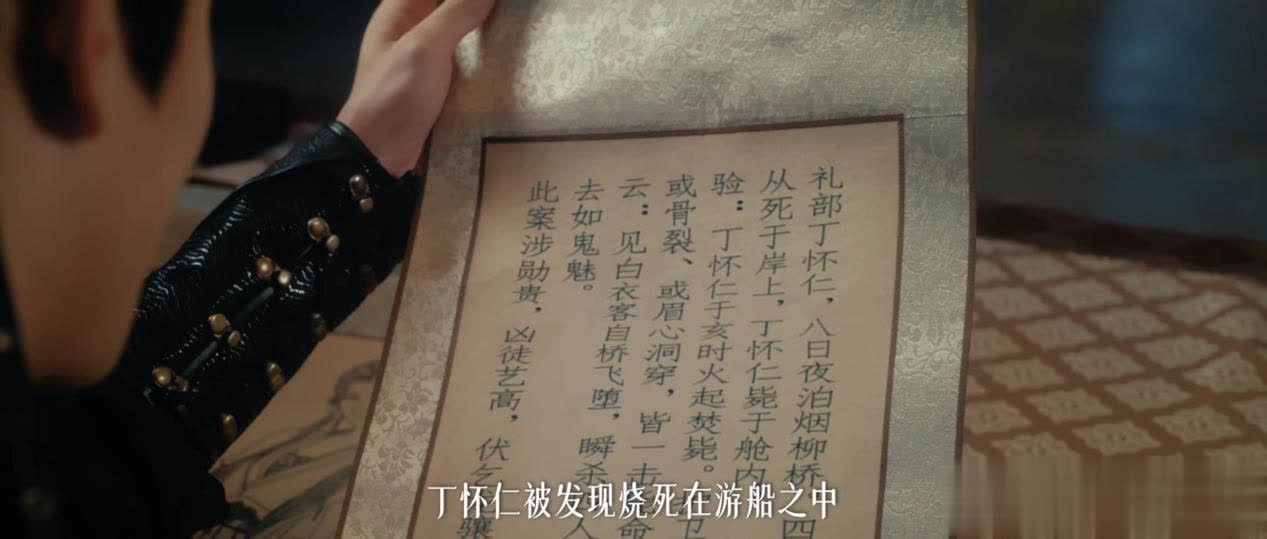 礼部丁怀仁，八日夜泊烟柳桥 四
从死于岸上，丁怀仁毙于舱内
验：丁怀仁于亥时火起焚毙。
或骨裂、或眉心洞穿，皆一击 命
云：见白衣客自桥飞堕，瞬杀 人
去如鬼魅。
此案涉勋贵，凶徒艺高，伏乞 骧
丁怀仁被发现烧死在游船之中